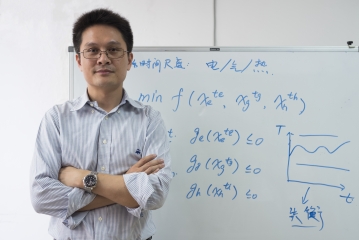 时间尺度: 电/气/热
min f(x_e^te, x_g^tg, x_h^th)
g_e(x_e^te) ≤ 0
g_g(x_g^tg) ≤ 0
g_h(x_h^th) ≤ 0
T
t
失衡